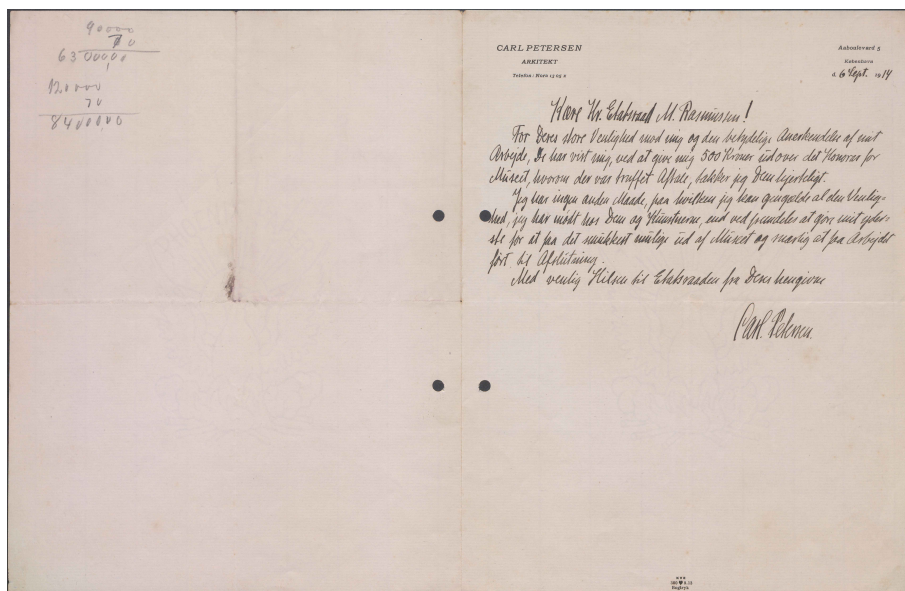 90000
70
6300000
120000
70
8400000
CARL PETERSEN
ARKITEKT
Telefon: Nora 1305 v
Aaboulevard 5
København
d. 6 Sept. 1914
Kære Hr. Etatsraad M. Rasmussen!
For Deres store Venlighed mod mig og den betydelige Anerkendelse af mit
Arbejde, De har vist mig, ved at give mig 500 Kroner udover det Honorar for
Museet, hvorom der var truffet Aftale, takker jeg Dem hjerteligt.
Jeg har ingen anden Maade, paa hvilken jeg kan gengælde al den Venlig-
hed, jeg har mødt hos Dem og Kunstnerne, end ved fremdeles at gøre mit yder-
ste for at faa det smukkest mulige ud af Museet og snarlig at faa Arbejdet
ført til Afslutning.
Med venlig Hilsen til Etatsraaden fra Deres hengivne
Carl Petersen.